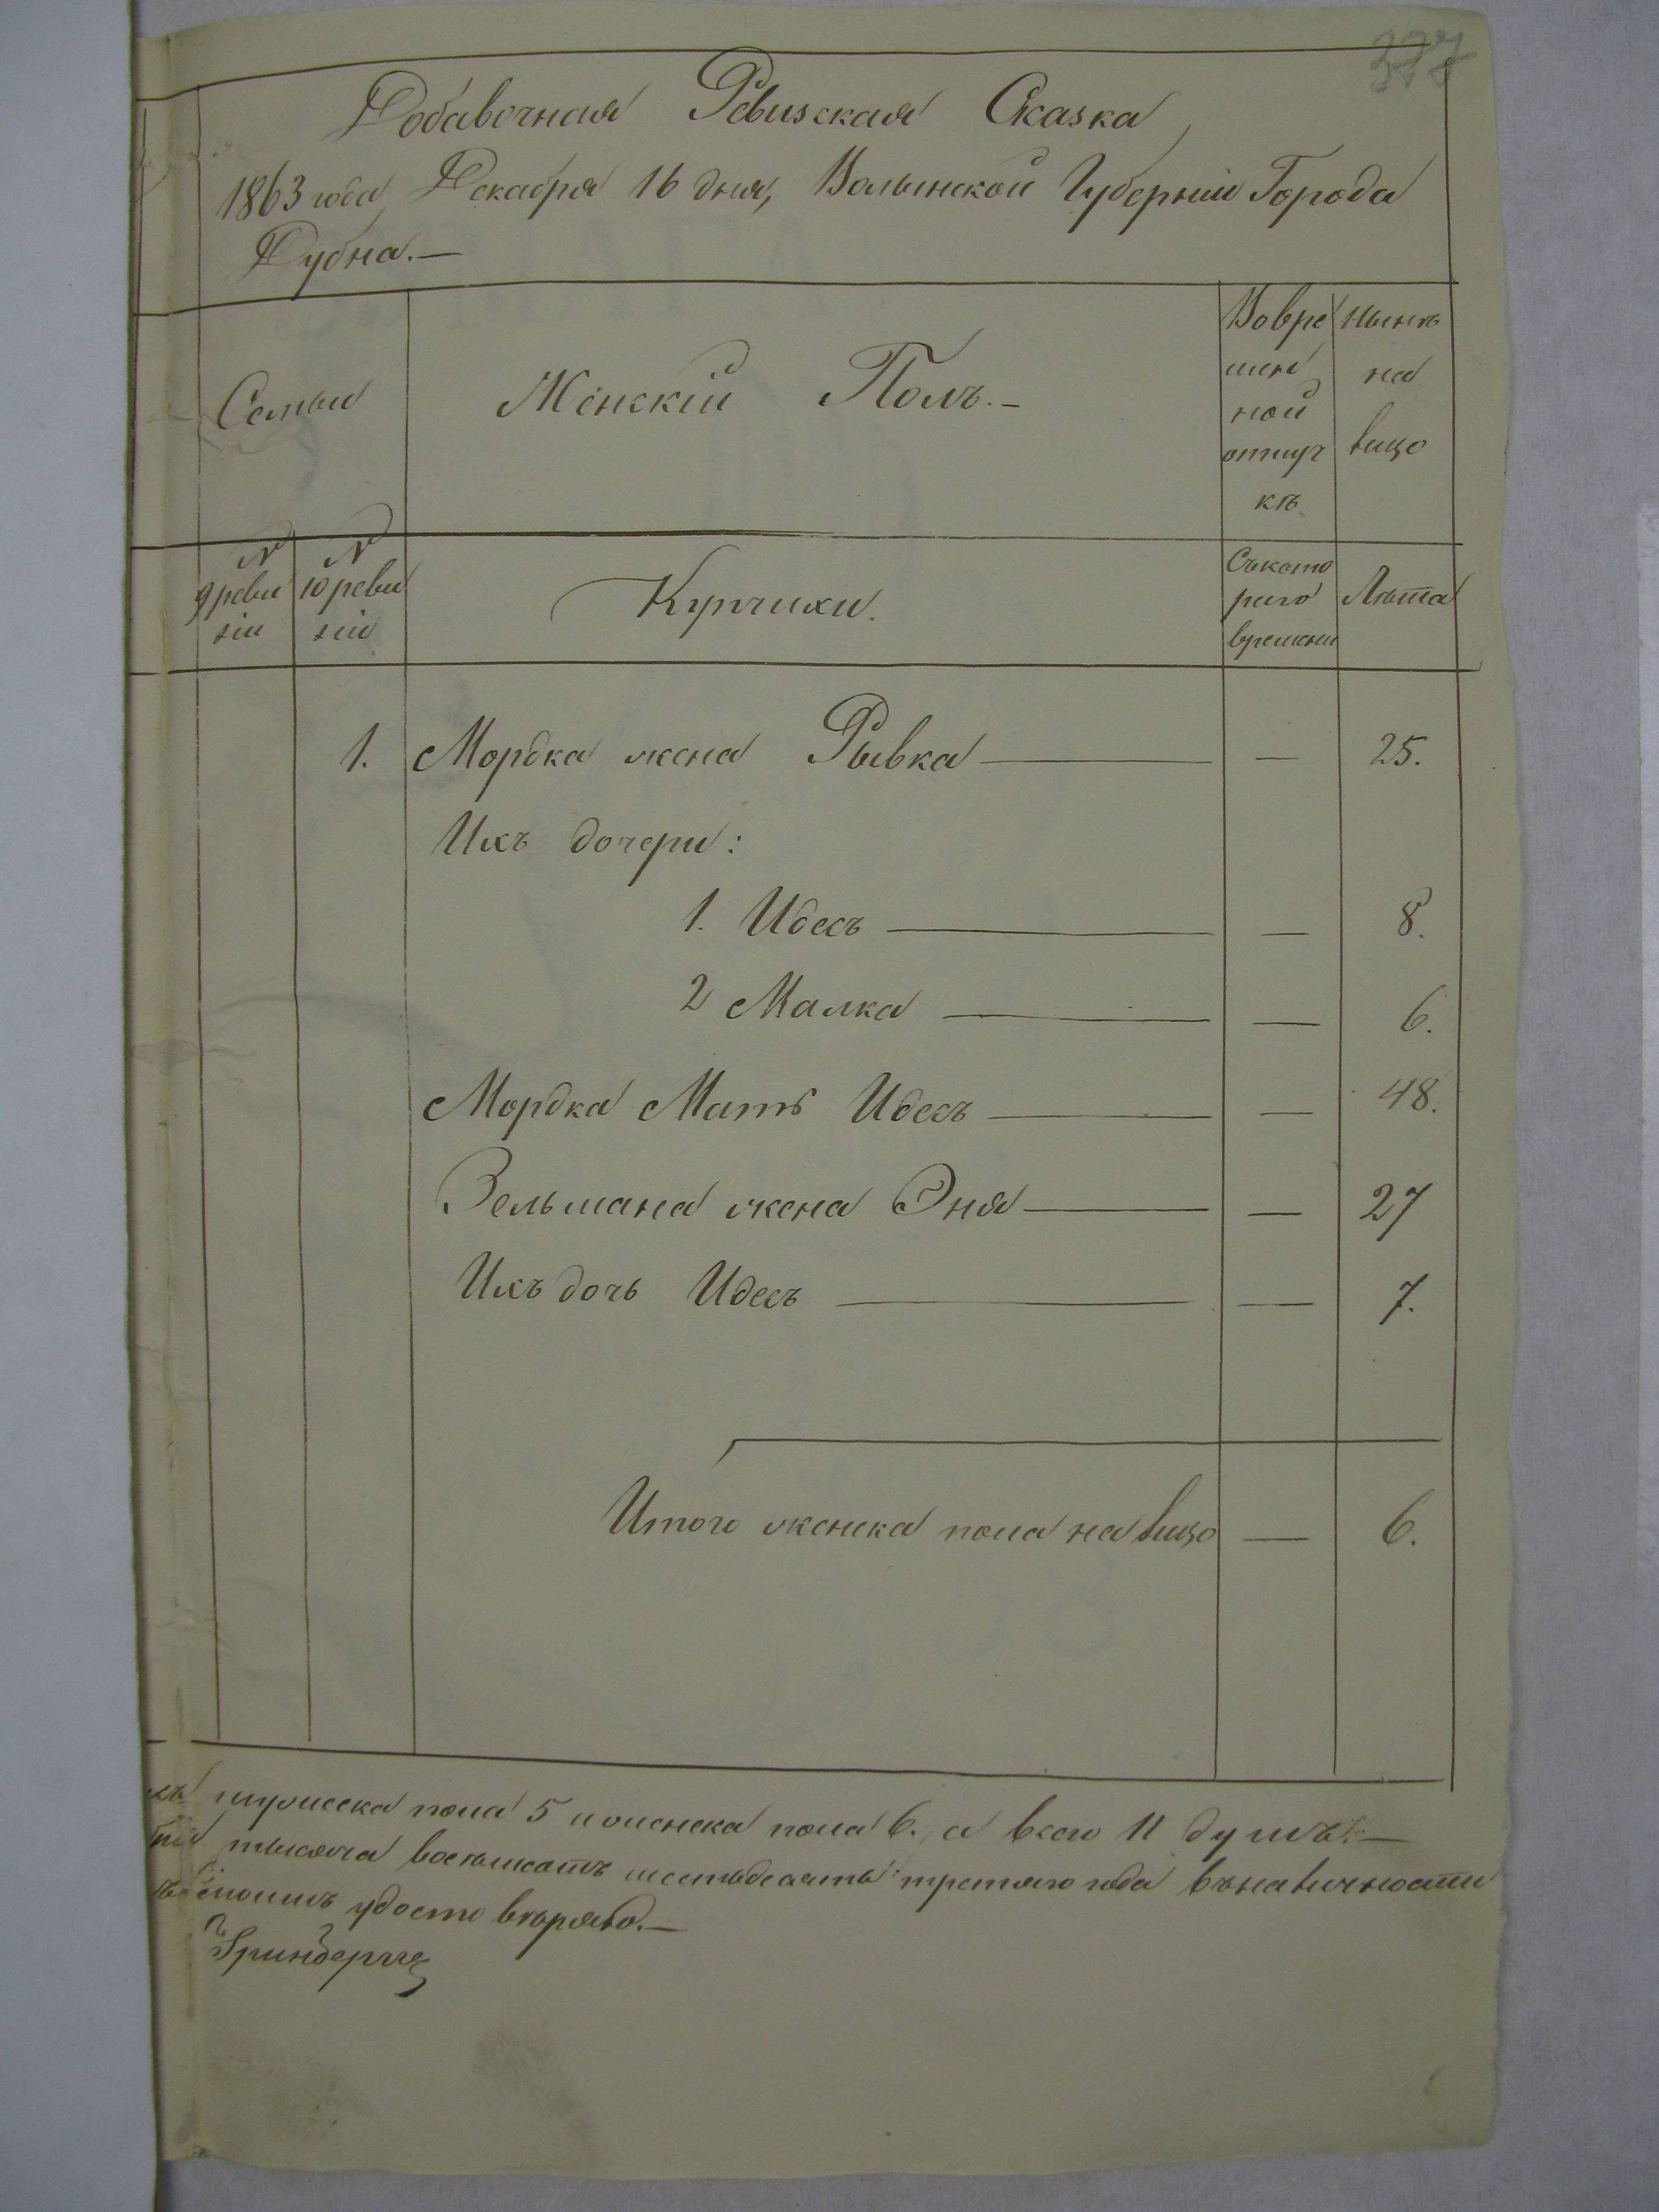 377
Добавочная Ревизская Сказка
1863 года Декабря 16 дня, Волынской Губерніи Города
Дубна.—
Семьи
Женскій Полъ.—
Вовре
мен
ной
отлуч
кѣ
нынѣ
на
лицо
№
9 реви
зіи
№
10 реви
зіи
Купчихи.
Съкото
раго
времени
Лѣта
1. Мордка жена Рывка — — 25.
Ихъ дочери:
1. Идесъ — — 8.
2 Малка — — 6.
Мордка Мать Идесъ — — 48.
Зельмана жена Эня — — 27
Ихъ дочь Идесъ — — 7.
Итого женска пола на лицо — 6.
мужеска пола 5 и женска пола 6. а всего 11 душъ.—
тысяча восемьсотъ шестьдесятъ третяго года въналичности
удосто вѣряю.—